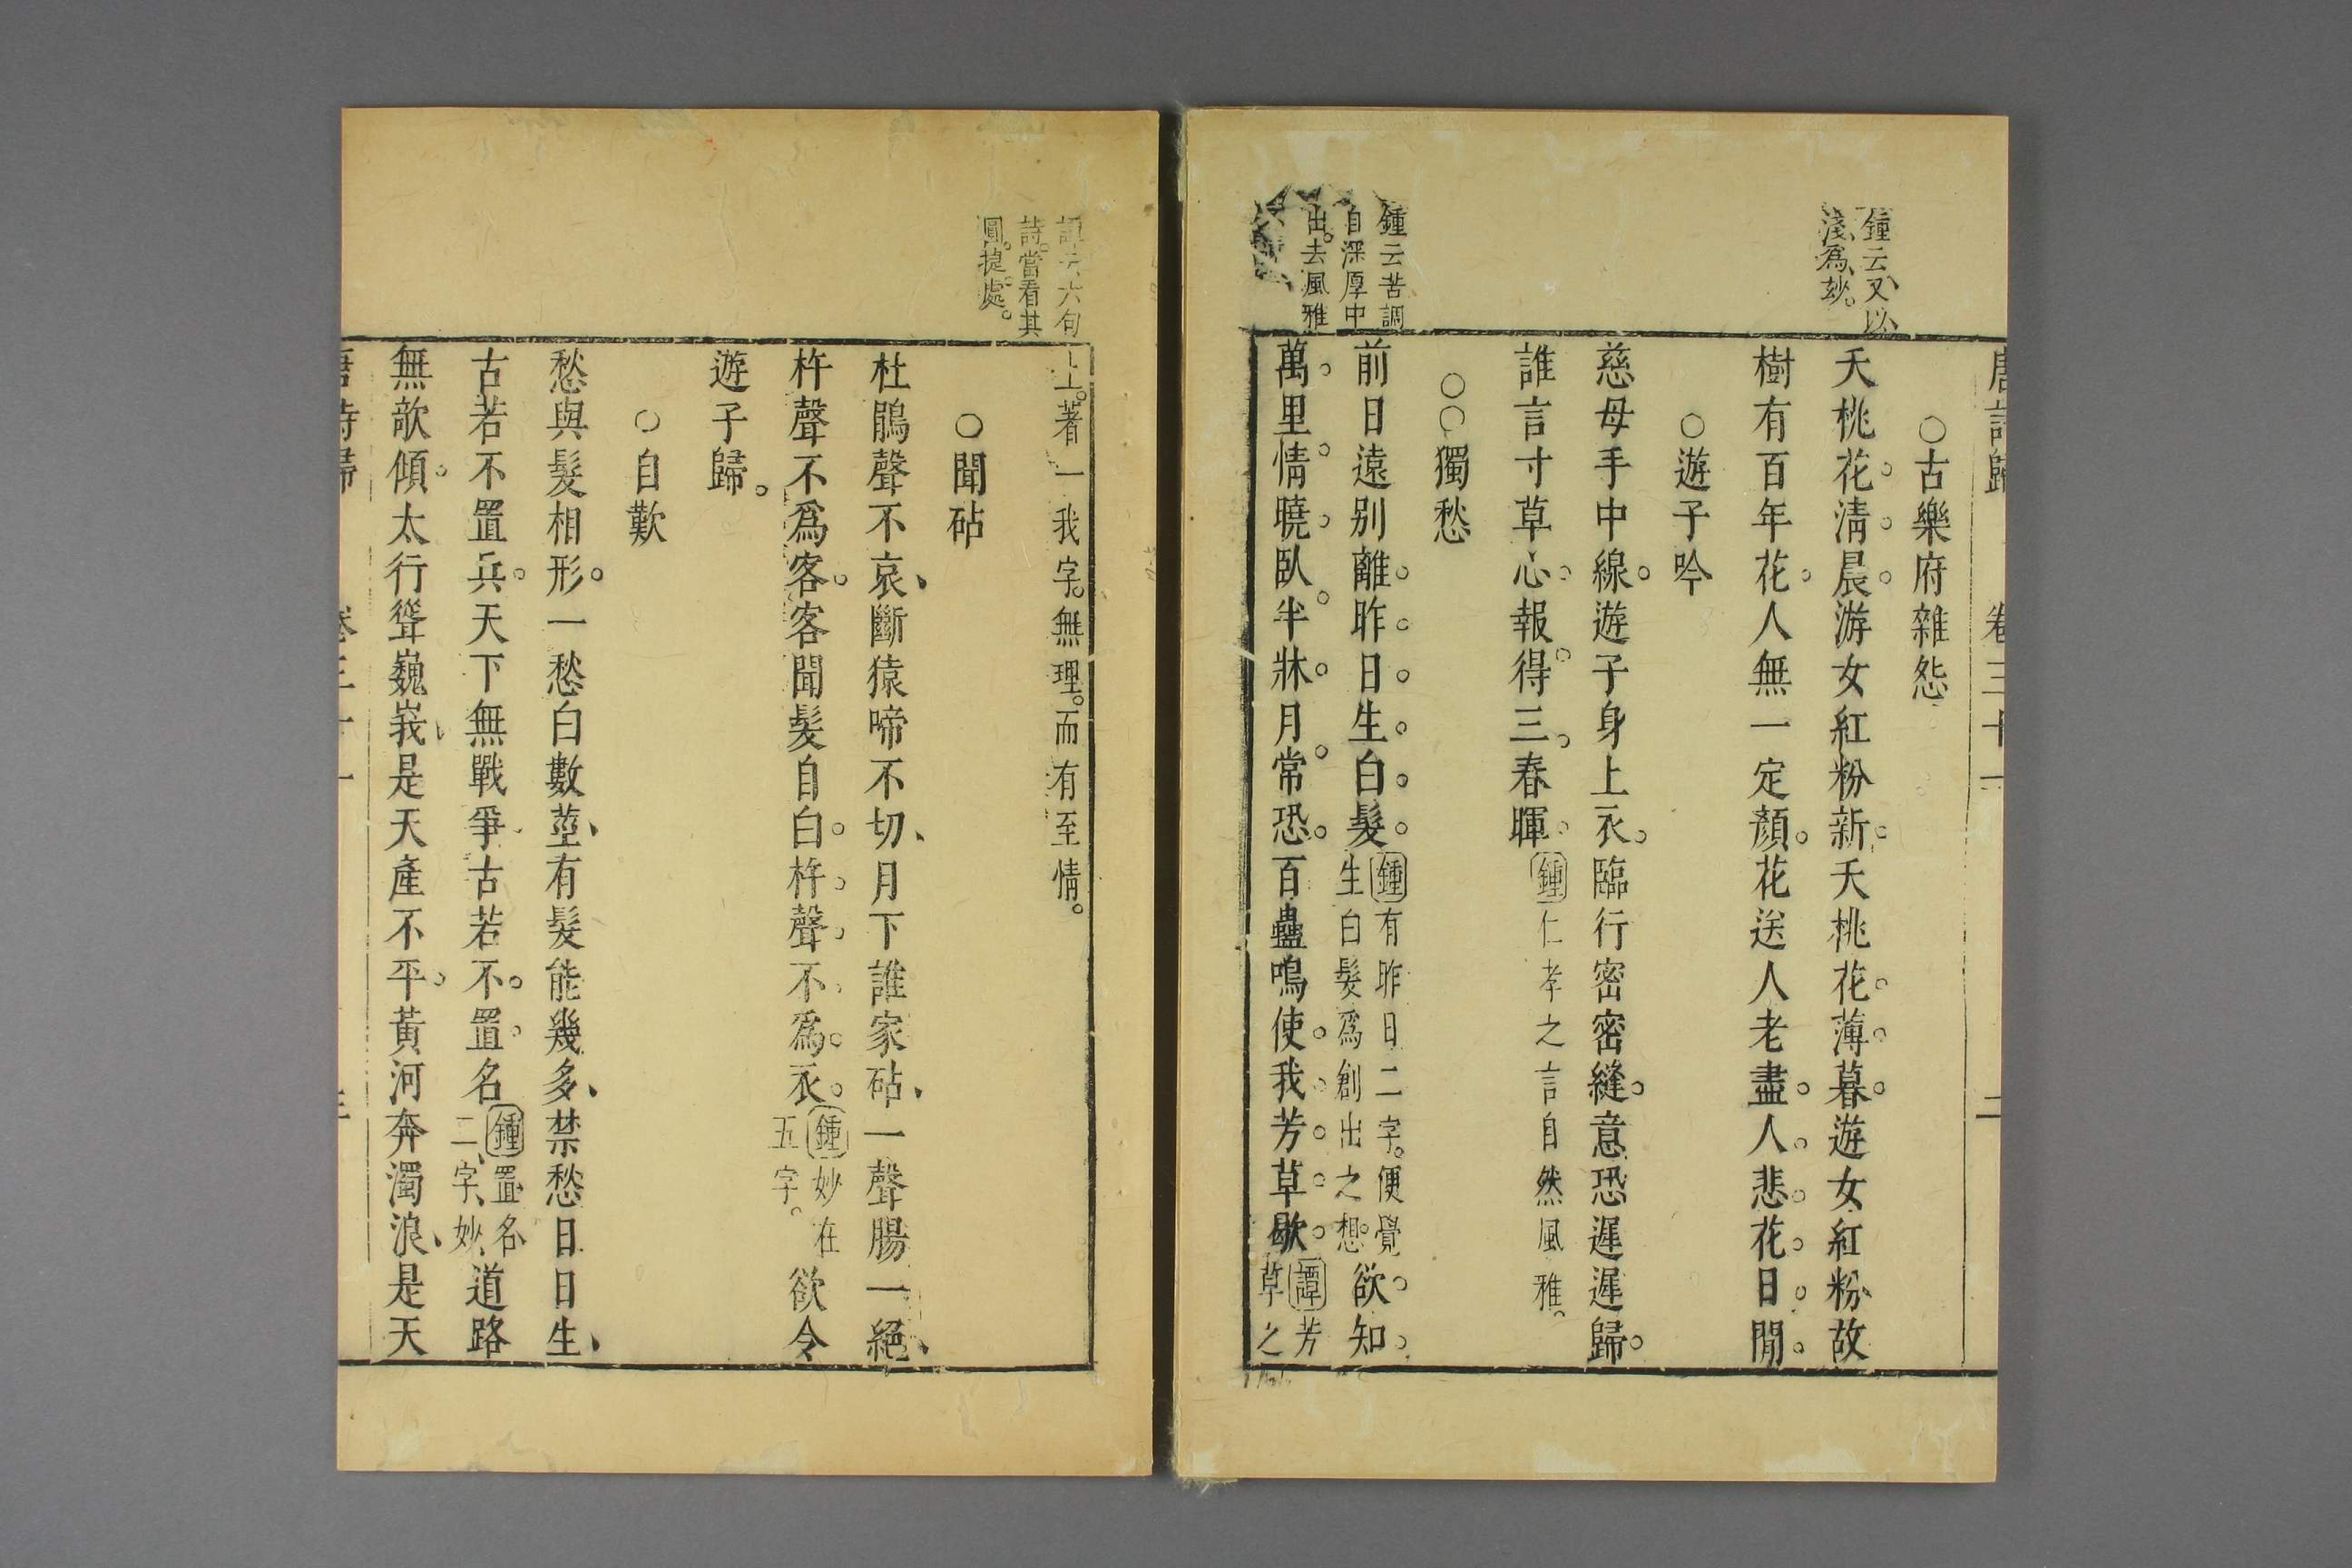 唐詩歸 卷三十一 二
○古樂府雜怨
夭桃花清晨游女紅粉新夭桃花薄暮遊女紅粉故
樹有百年花人無一定顏花送人老盡人悲花日閒
○遊子吟
慈母手中線遊子身上衣臨行密密縫意恐遲遲歸
誰言寸草心報得三春暉鍾仁孝之言自然風雅
○○獨愁
前日遠別離昨日生白髮鍾有昨日二字便覺生白髮為創出之想欲知
萬里情曉臥半牀月常恐百蟲鳴使我芳草歇譚芳草之
鍾云又以
淺為妙
鍾云苦調
自深厚中
出去風雅
上著一我字無理而有至情
○聞砧
杜鵑聲不哀斷猿啼不切月下誰家砧一聲腸一絕
杵聲不為客客聞髮自白杵聲不為衣鍾妙在五字欲令
遊子歸
○自歎
愁與髮相形一愁白數莖有髮能幾多禁愁日日生
古若不置兵天下無戰爭古若不置名鍾置名二字妙道路
無欹傾太行聳巍峩是天產不平黃河奔濁浪是天
唐詩歸 卷三十一 三
譚云六句
詩當看其
圓捷處